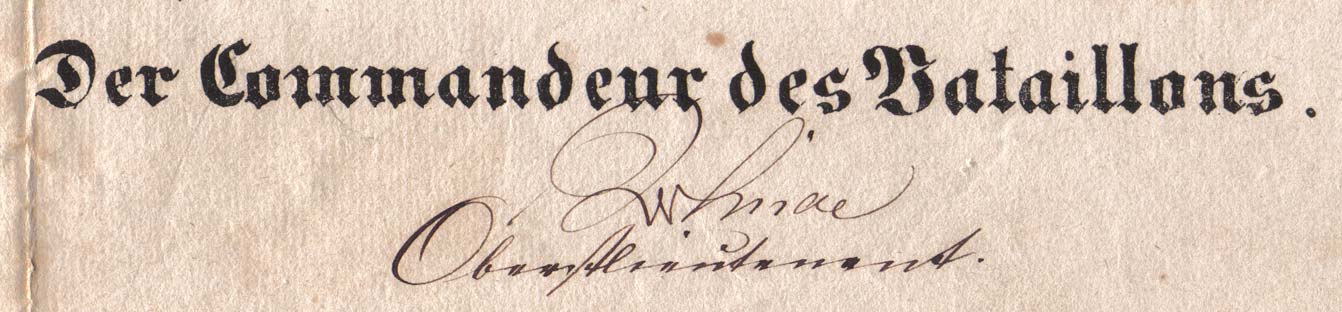 Der Commandeur des Bataillons.
Oberstlieutenant.